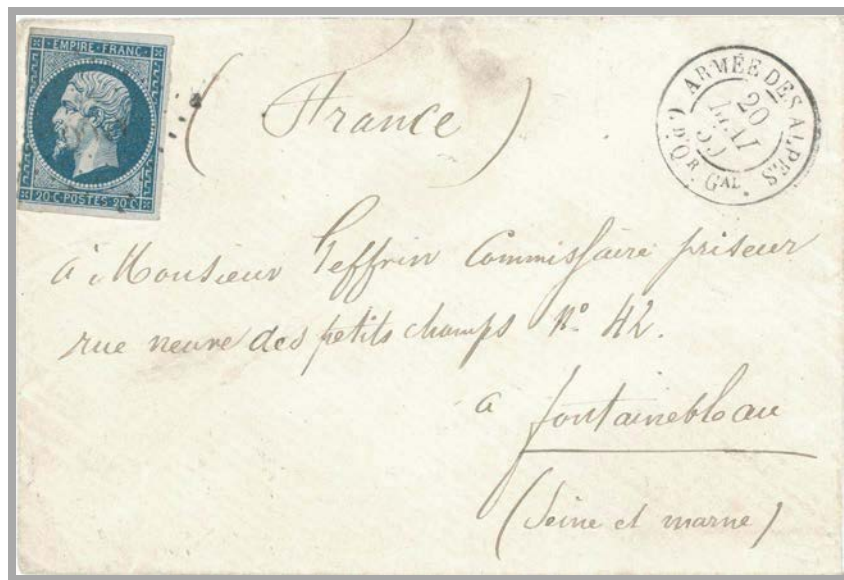 EMPIRE FRANC
20 C POSTES 20 C
ARMÉE DES ALPES
20
MAI
59
Qr. GAL.
( France )
à Monsieur Geffrin Commissaire priseur
rue neuve des petits champs No 42.
a fontainebleau
(Seine et marne)